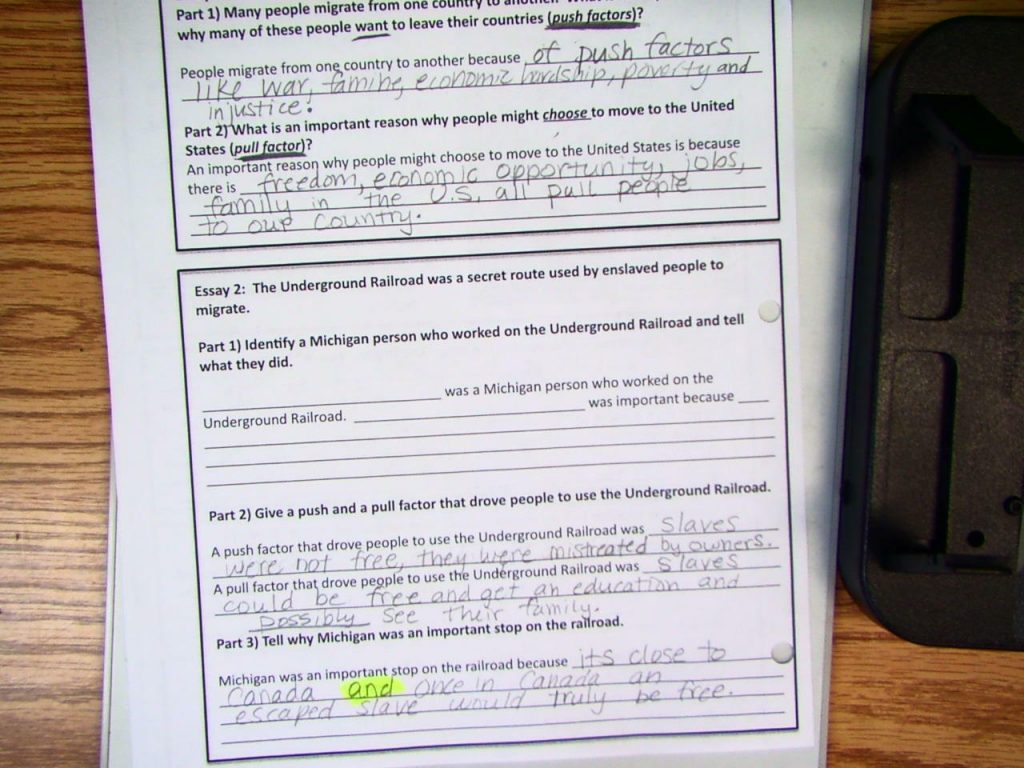 Part 1) Many people migrate from one country to another.
why many of these people want to leave their countries (push factors)?
People migrate from one country to another because of push factors
like war, famine, economic hardship, poverty and
injustice.
Part 2) What is an important reason why people might choose to move to the United
States (pull factor)?
An important reason why people might choose to move to the United States is because
there is freedom, economic opportunity, jobs,
family in the U.S. all pull people
to our country.
Essay 2: The Underground Railroad was a secret route used by enslaved people to
migrate.
Part 1) Identify a Michigan person who worked on the Underground Railroad and tell
what they did.
was a Michigan person who worked on the
Underground Railroad. was important because
Part 2) Give a push and a pull factor that drove people to use the Underground Railroad.
A push factor that drove people to use the Underground Railroad was slaves
were not free, they were mistreated by owners.
A pull factor that drove people to use the Underground Railroad was slaves
could be free and get an education and
possibly see their family.
Part 3) Tell why Michigan was an important stop on the railroad.
Michigan was an important stop on the railroad because its close to
Canada and once in Canada an
escaped slave would truly be free.